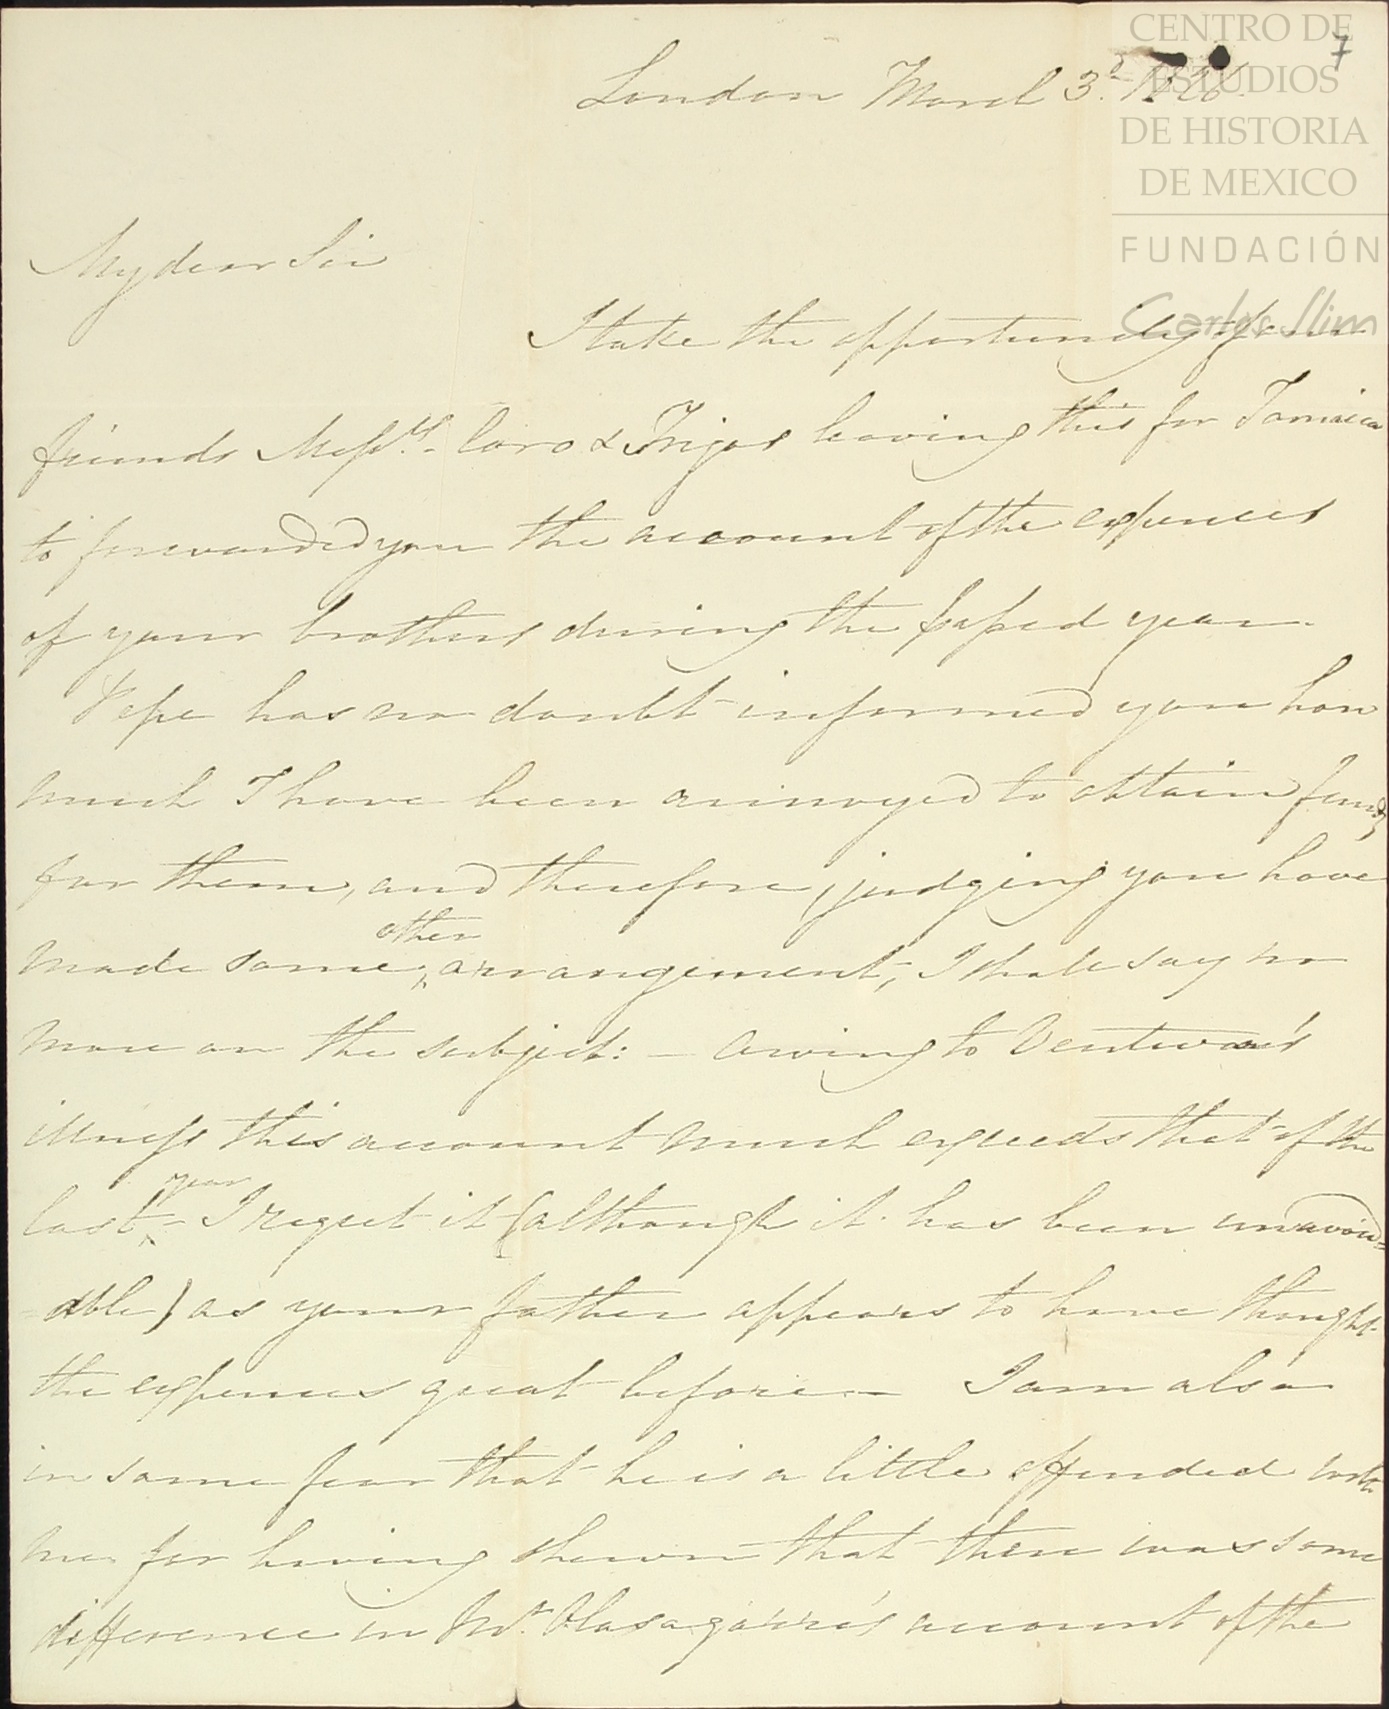 CENTRO DE
ESTUDIOS
DE HISTORIA
DE MEXICO
FUNDACIÓN
Carlos Slim
7
London March 3d. 1826
My dear Sir
I take the opportunity of our
friends Messrs. Caro & Trigos leaving this for Jamaica
to forwarded you the account of the expences
of your brothers during the passed year.
Pepe has no doubt informed you how
much I have been annoyed to obtain funds
for them, and therefore, judging you have
made some other arrangement, I shall say no
more on the subject: - Owing to Ventura's
illness this account much exceeds that of the
last year - I regret it (although it has been unavoid=
=able) as your father appears to have thought
the expences great before - I am also
in some fear that he is a little offended with
me for having shewn that there was some
difference in Mr. Olasagarre's account of the